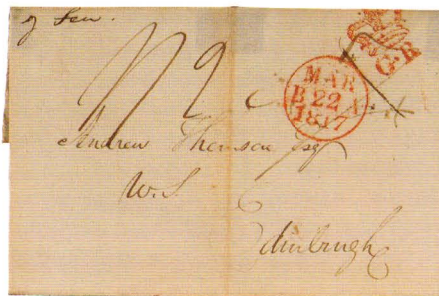 MAR
B 22 A
1817
G R
Andrew Thomson Esq
W.S.
Edinburgh